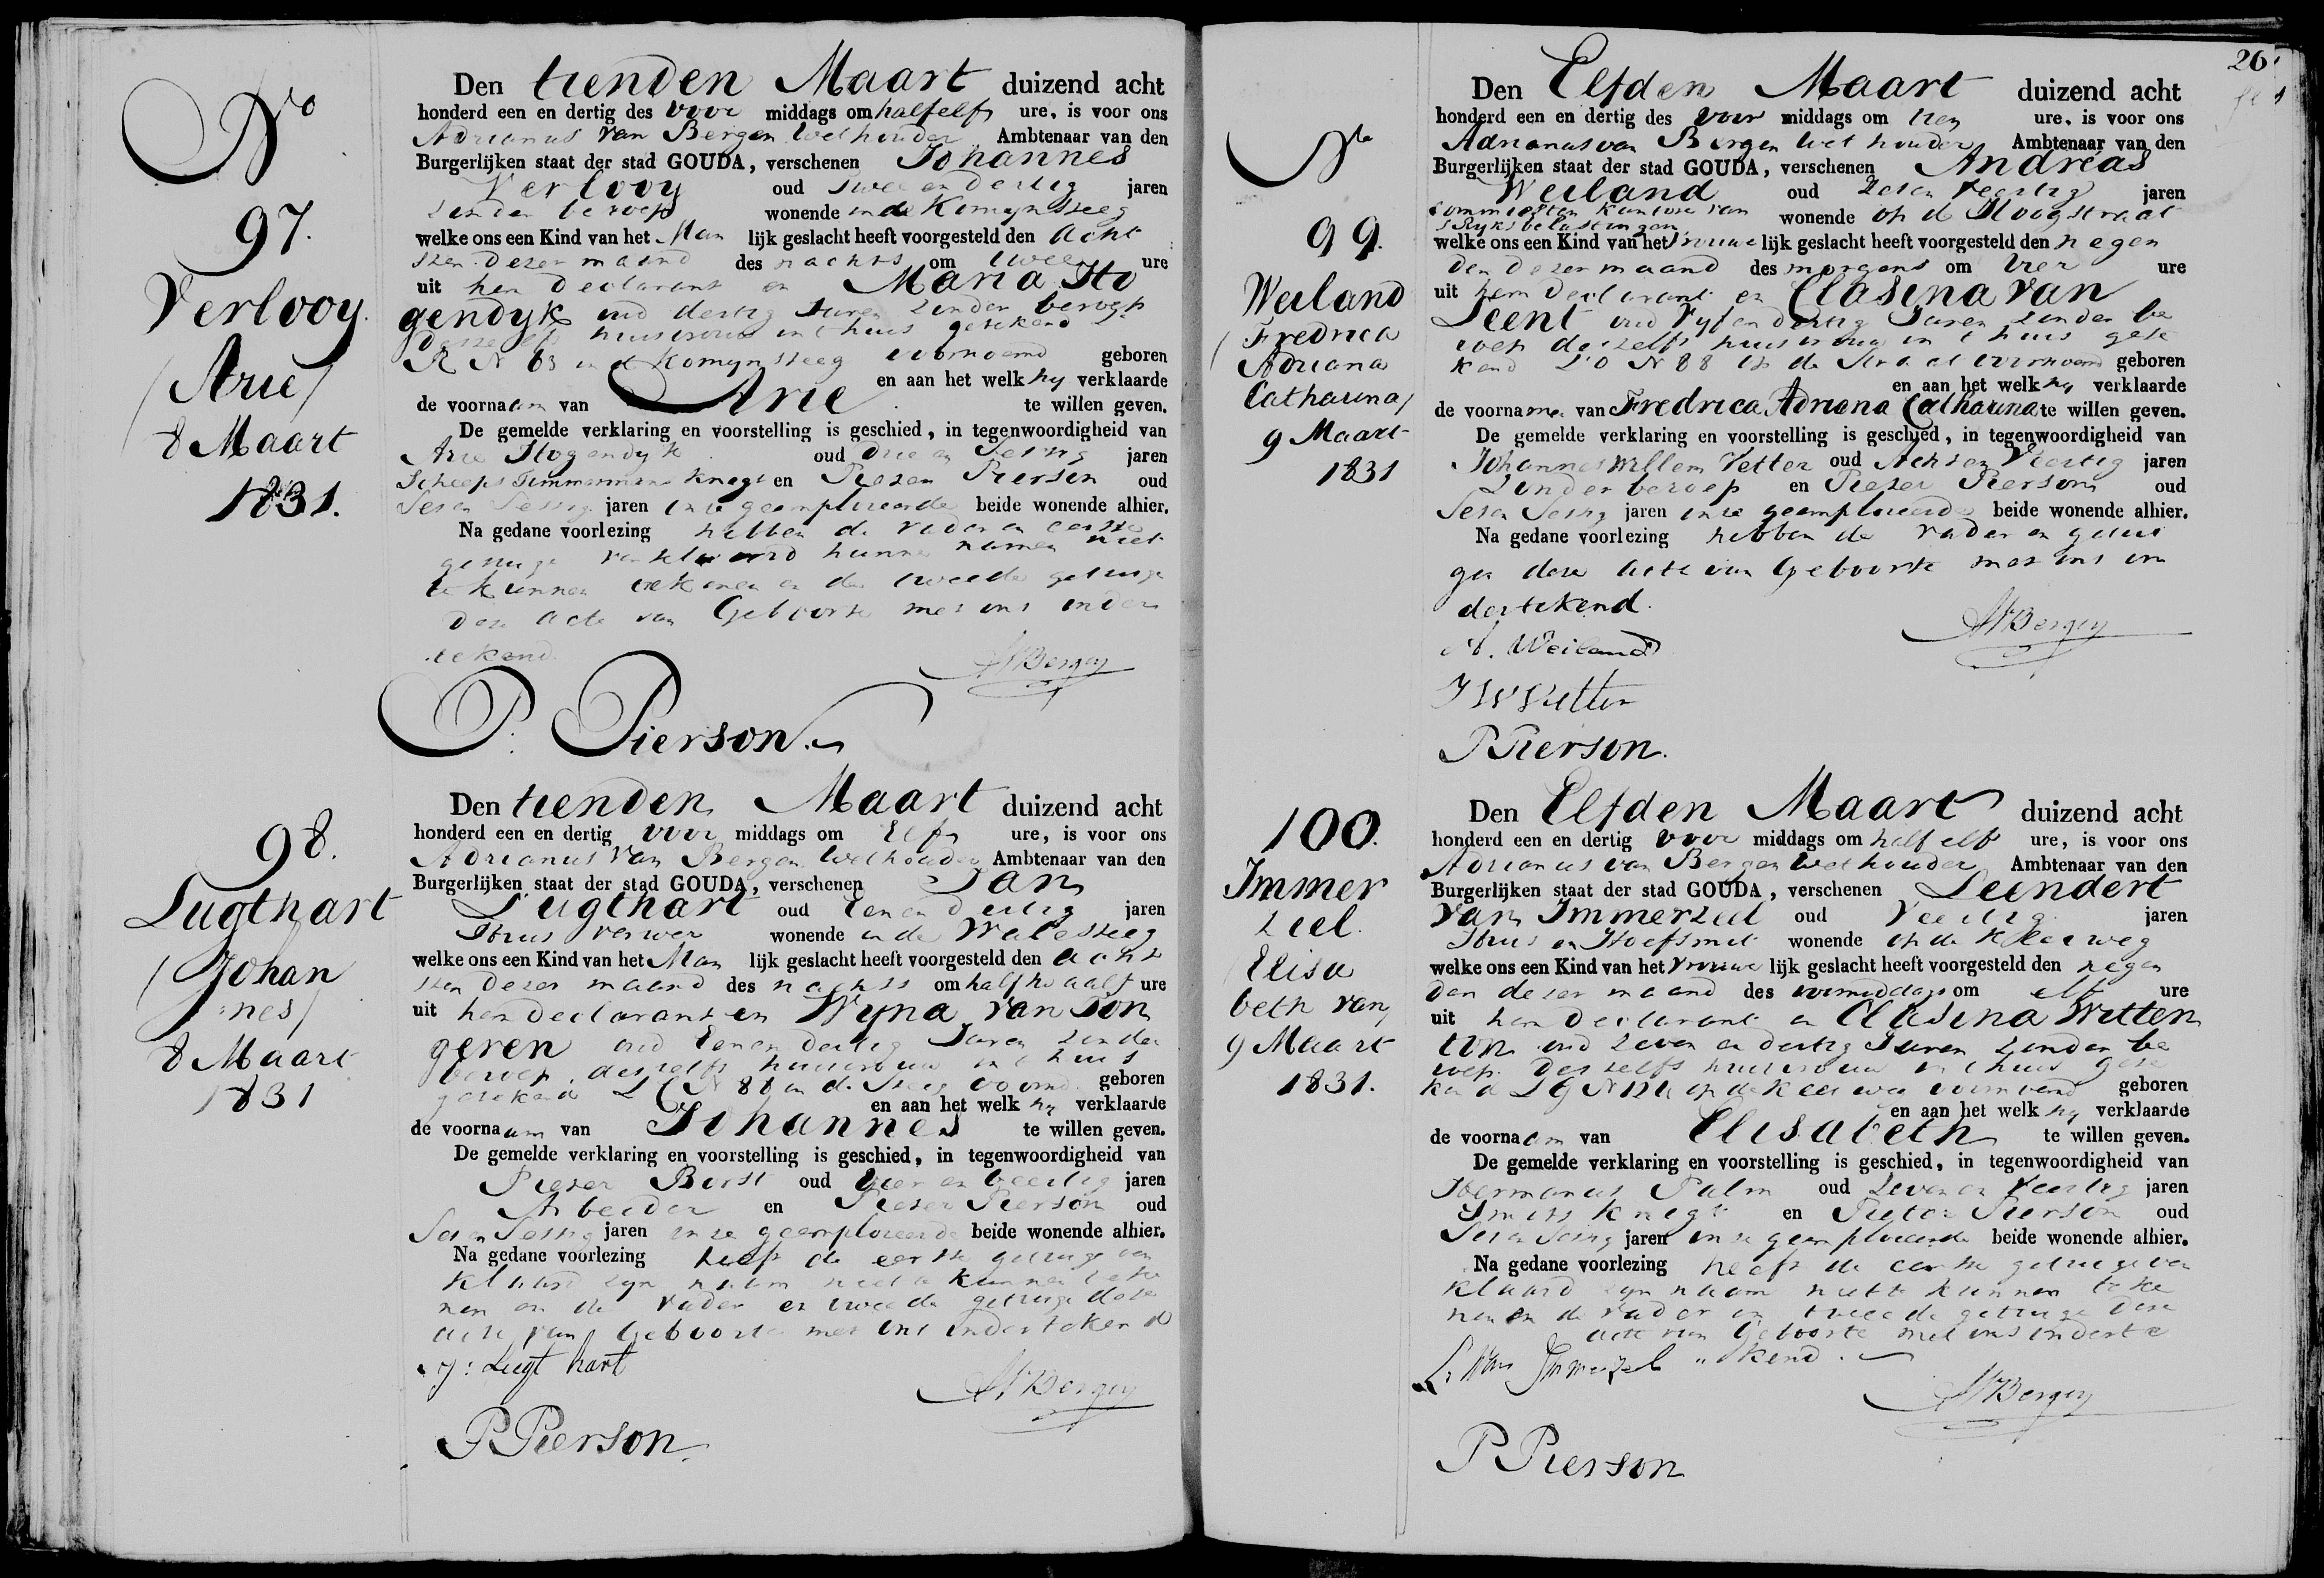 No
97.
Verlooy.
(Arie)
8 Maart
1831.
Den tienden Maart duizend acht
honderd een en dertig des voor middags om half elf ure, is voor ons
Adrianus van Bergen Wethouder Ambtenaar van den
Burgerlijken staat der stad GOUDA, verschenen Johannes
Verlooy oud Twee en Dertig jaren
zonder beroep wonende in de Komynsteeg
welke ons een Kind van het Man lijk geslacht heeft voorgesteld den Acht
sten dezer maand des nachts om twee ure
uit hem declarant en Maria Ho
gendyk oud dertig Jaren zonder beroep
deszelfs huisvrouw in t huis getekend L
R N 63 in d Komynsteeg voornoemd geboren
en aan het welk hy verklaarde
de voornaam van Arie te willen geven.
De gemelde verklaring en voorstelling is geschied, in tegenwoordigheid van
Arie Hogendyk oud Drie en Sestig jaren
Scheeps Timmermans knegt en Pieter Pierson oud
Ses en Sestig jaren onze geemploieerde beide wonende alhier.
Na gedane voorlezing hebben de vader en eerste
getuige verklaard hunne namen niet
te kunnen tekenen en de tweede getuige
deze acte van Geboorte met ons onder
tekend.
AvBergen
P. Pierson.
98.
Lugthart
(Johan
nes)
8 Maart
1831
Den tienden Maart duizend acht
honderd een en dertig voor middags om Elf ure, is voor ons
Adrianus van Bergen Wethouder Ambtenaar van den
Burgerlijken staat der stad GOUDA, verschenen Jan
Lugthart oud Een en Dertig jaren
Huis verwer wonende in de Walesteeg
welke ons een Kind van het Man lijk geslacht heeft voorgesteld den acht
sten dezer maand des nachts om half twaalf ure
uit hem declarant en Wyna van Ton
geren oud Een en Dertig Jaren zonder
beroep deszelfs huisvrouw in t huis
getekend L C N 88 in de Steeg voornd. geboren
en aan het welk hy verklaarde
de voornaam van Johannes te willen geven.
De gemelde verklaring en voorstelling is geschied, in tegenwoordigheid van
Pieter Borst oud Vier en Veertig jaren
Arbeider en Pieter Pierson oud
Ses en Sestig jaren onze geemploieerde beide wonende alhier.
Na gedane voorlezing heeft de eerste getuige ver
klaard zyn naam niet te kunnen teke
nen en de vader en tweede getuige deze
acte van Geboorte met ons ondertekend
J: Lugt hart
AvBergen
PPierson
26
No
99.
Weiland
(Fredrica
Adriana
Catharina)
9 Maart
1831
Den Elfden Maart duizend acht
honderd een en dertig des voor middags om tien ure, is voor ons
Adrianus van Bergen Wethouder Ambtenaar van den
Burgerlijken staat der stad GOUDA, verschenen Andréas
Weiland oud Zes en Veertig jaren
commies ten kantore van wonende op de Hoogstraat
sRyks belastingen
welke ons een Kind van het Vrouwe lijk geslacht heeft voorgesteld den negen
den dezer maand des morgens om vier ure
uit hem declarant en Clasina van
Leent oud Vyf en dertig Jaren zonder be
roep deszelfs huisvrouw in t huis gete
kend L O N 88 op de Straat voornoemd geboren
en aan het welk hy verklaarde
de voorname van Fredrica Adriana Catharina te willen geven.
De gemelde verklaring en voorstelling is geschied, in tegenwoordigheid van
Johannes Willem Vetter oud Acht en Veertig jaren
Zonder beroep en Pieter Pierson oud
Ses en Sestig jaren onze geemploieerde beide wonende alhier.
Na gedane voorlezing hebben de vader en getui
gen deze acte van Geboorte met ons on
dertekend.
A. Weiland
AvBergen
JWVetter
PPierson.
100.
Immer
zeel.
(Elisa
beth van)
9 Maart
1831.
Den Elfden Maart duizend acht
honderd een en dertig voor middags om half elf ure, is voor ons
Adrianus van Bergen Wethouder Ambtenaar van den
Burgerlijken staat der stad GOUDA, verschenen Leendert
van Immerzeel oud Veertig jaren
Huis en Hoefsmit wonende op de Kleiweg
welke ons een Kind van het Vrouwe lijk geslacht heeft voorgesteld den negen
den dezer maand des voormiddags om elf ure
uit hem declarant en Clasina Witten
ton oud Zeven en dertig Jaren zonder be
roep deszelfs huisvrouw in t huis gete
kend L G N 124 op de Kleiweg voornoemd geboren
en aan het welk hy verklaarde
de voornaam van Elisabeth te willen geven.
De gemelde verklaring en voorstelling is geschied, in tegenwoordigheid van
Hermanus Palm oud Zeven en Veertig jaren
Smits knegt en Pieter Pierson oud
Ses en Sestig jaren onze geemploieerde beide wonende alhier.
Na gedane voorlezing heeft de eerste getuige ver
klaard zyn naam niet te kunnen teke
nen en de vader en tweede getuige deze
acte van Geboorte met ons onderte
kend.
L: Van Immerzeel
AvBergen
PPierson